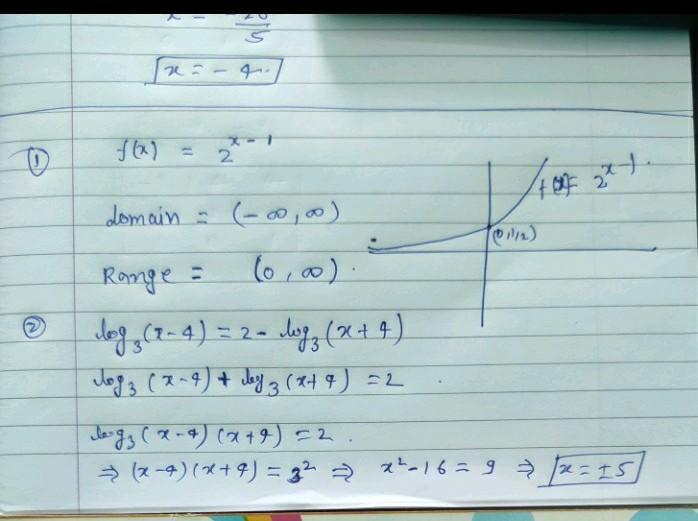 5
x = - 4.
① f(x) = 2^{x-1}
domain = (-∞, ∞)
Range = (0, ∞).
f(x) = 2^{x-1}.
(0, 1/2)
② log₃(x-4) = 2 - log₃(x+4)
log₃(x-4) + log₃(x+4) = 2.
log₃(x-4)(x+4) = 2.
⇒ (x-4)(x+4) = 3² ⇒ x²-16 = 9 ⇒ x = ±5